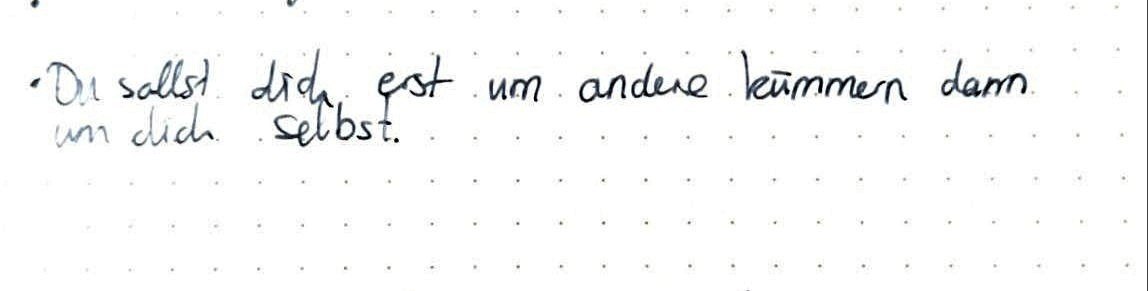 · Du sollst dich erst um andere kümmern dann
um dich selbst.